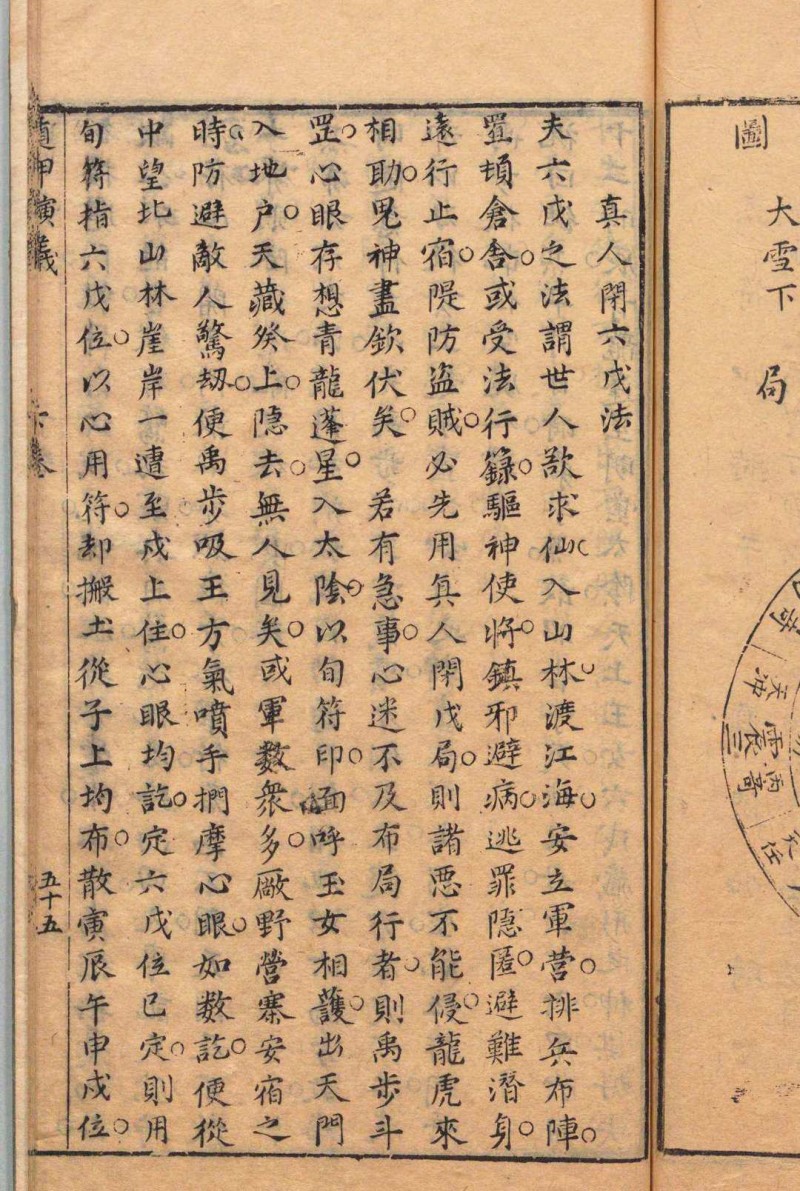 圖
大雪下
局
真人閉六戊法
夫六戊之法謂世人欲求仙入山林渡江海安立軍营排兵布陣
置頓倉舍或受法行籙驅神使將鎮邪避病逃罪隐匿避難潛身
遠行止宿隄防盗賊必先用真人閉戊局則諸悪不能侵龍虎來
相助鬼神盡欽伏矣 若有急事心迷不及布局行者則禹步斗
罡心眼存想青龍蓬星入太陰以旬符印面呼玉女相護出天門
入地户天藏癸上隐去無人見矣或軍数衆多厰野营寨安宿之
時防避敵人驚刼便禹步吸王方氣噴手捫摩心眼如数訖便從
中望北山林崖岸一遭至戍上住心眼均訖定六戊位已定則用
旬符指六戊位以心用符却搬土從子上均布散寅辰午申戌位
遁甲演義
下卷
五十五